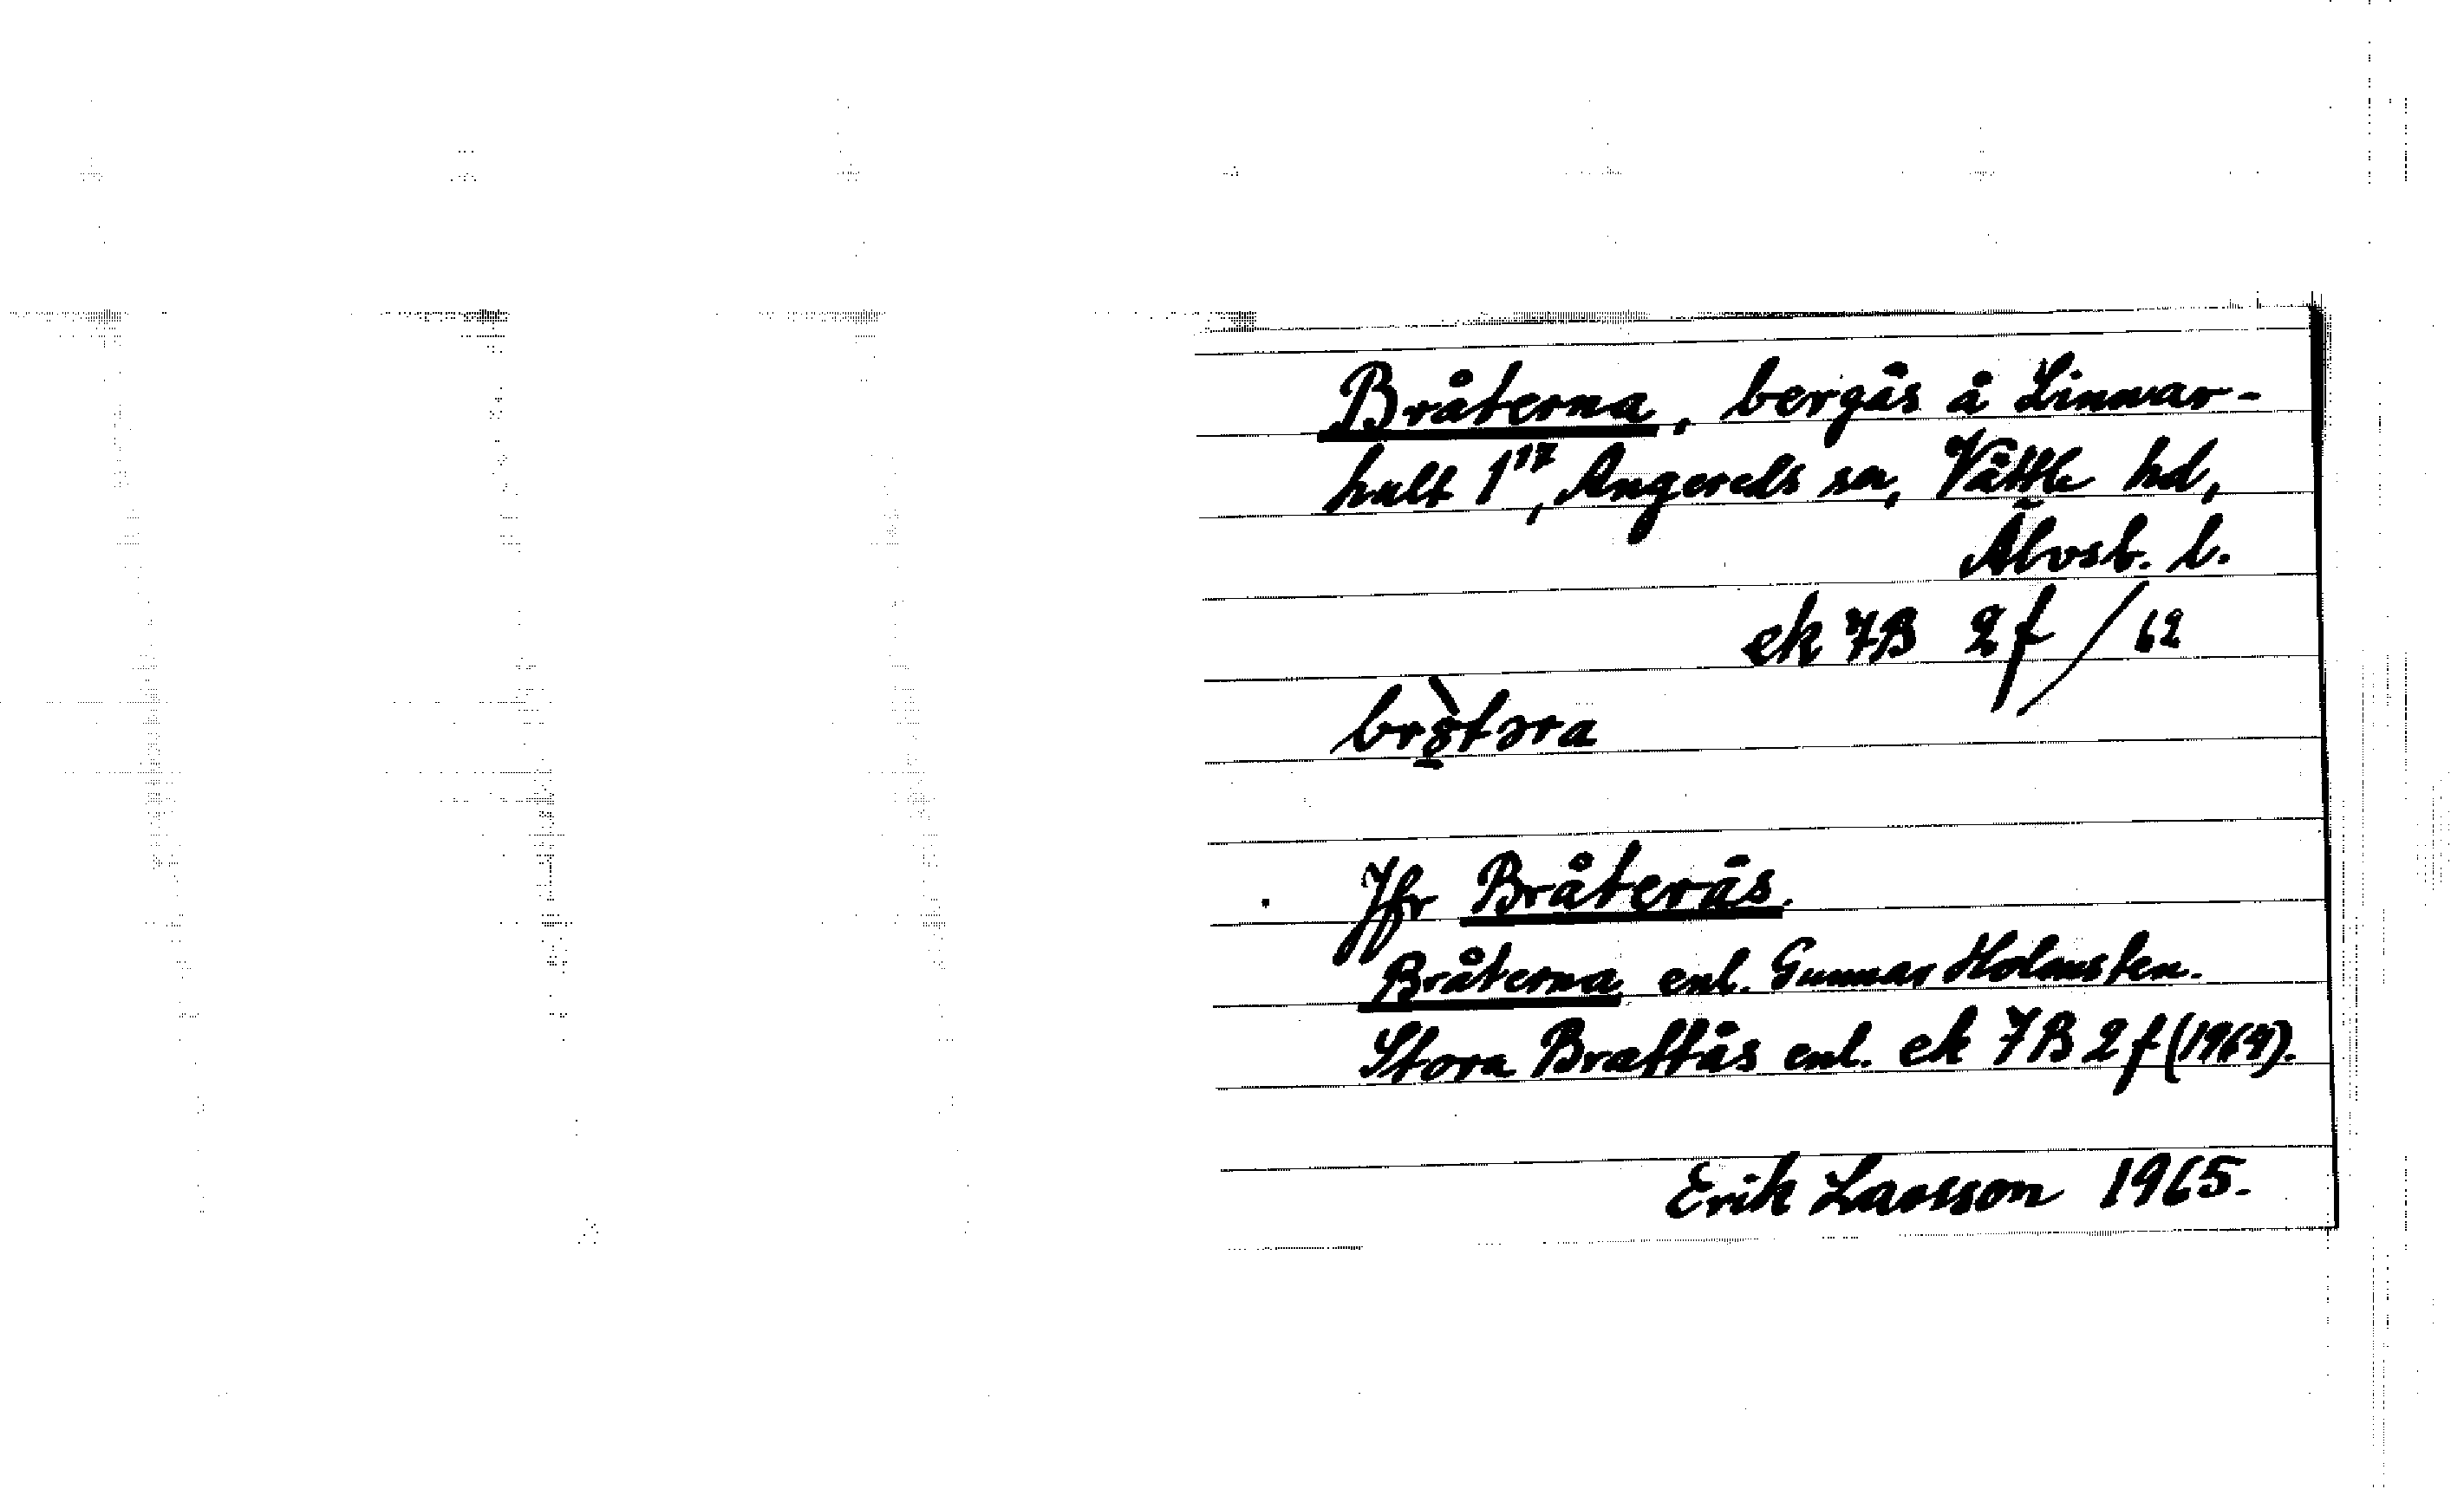 Bråterna, bergås å Linnar-
hult 1¹⁷, Angereds sn, Vättle hd,
Älvsb. l.
ek 7B 2f / 62
Jfr Bråterås.
Bråterna enl. Gunnar Holmsten.
Stora Brattås enl. ek 7B 2f (1964).
Erik Larsson 1965.